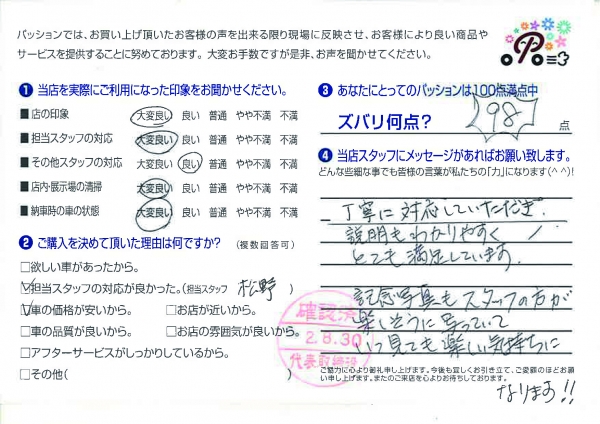 パッションでは、お買い上げ頂いたお客様の声を出来る限り現場に反映させ、お客様により良い商品や
サービスを提供することに努めております。大変お手数ですが是非、お声を聞かせてください。
❶ 当店を実際にご利用になった印象をお聞かせください。
■店の印象 大変良い 良い 普通 やや不満 不満
■担当スタッフの対応 大変良い 良い 普通 やや不満 不満
■その他スタッフの対応 大変良い 良い 普通 やや不満 不満
■店内・展示場の清掃 大変良い 良い 普通 やや不満 不満
■納車時の車の状態 大変良い 良い 普通 やや不満 不満
❷ ご購入を決めて頂いた理由は何ですか? (複数回答可)
□欲しい車があったから。
☑担当スタッフの対応が良かった。(担当スタッフ 松野 )
☑車の価格が安いから。 □お店が近いから。
□車の品質が良いから。 □お店の雰囲気が良いから。
□アフターサービスがしっかりしているから。
□その他( )
確認済
2.8.30
代表取締役
❸ あなたにとってのパッションは100点満点中
ズバリ何点? 98 点
❹ 当店スタッフにメッセージがあればお願い致します。
どんな些細な事でも皆様の言葉が私たちの「力」になります(^ ^)!
丁寧に対応していただき、
説明もわかりやすく
とても満足しています。
記念写真もスタッフの方が
楽しそうに写っていて
いつ見ても楽しい気持ちに
なります!!
ご協力に心より御礼申し上げます。今後も宜しくお引き立て、ご愛顧のほどお願
い申し上げます。またのご来店を心よりお待ちしております。